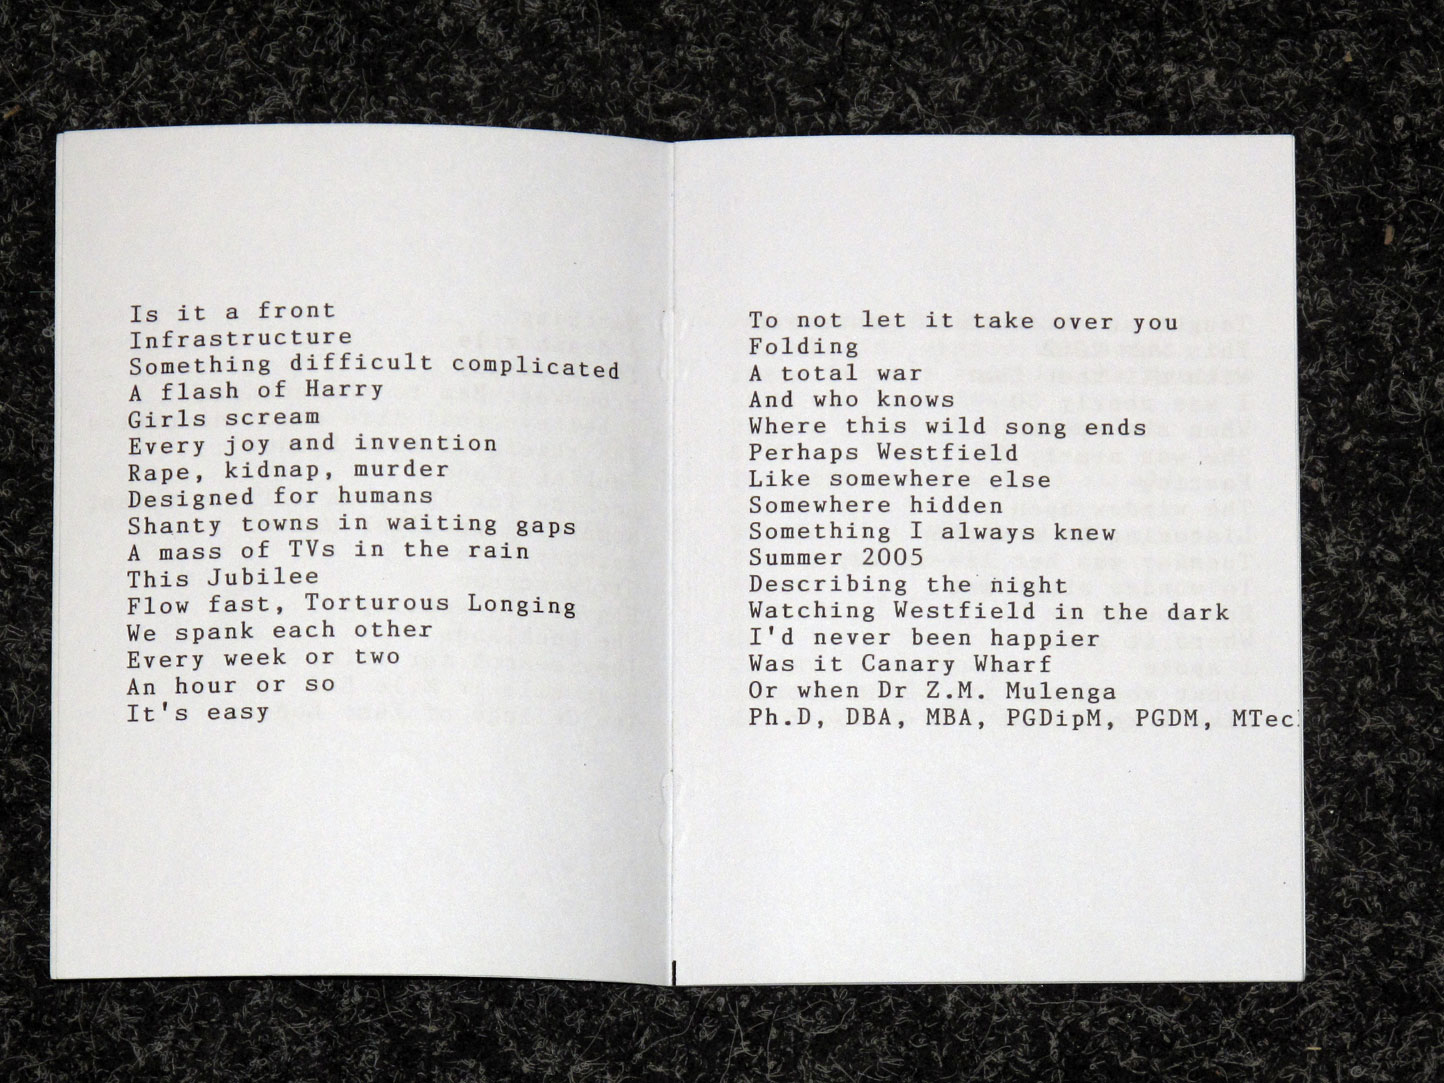 Is it a front
Infrastructure
Something difficult complicated
A flash of Harry
Girls scream
Every joy and invention
Rape, kidnap, murder
Designed for humans
Shanty towns in waiting gaps
A mass of TVs in the rain
This Jubilee
Flow fast, Torturous Longing
We spank each other
Every week or two
An hour or so
It's easy
To not let it take over you
Folding
A total war
And who knows
Where this wild song ends
Perhaps Westfield
Like somewhere else
Somewhere hidden
Something I always knew
Summer 2005
Describing the night
Watching Westfield in the dark
I'd never been happier
Was it Canary Wharf
Or when Dr Z.M. Mulenga
Ph.D, DBA, MBA, PGDipM, PGDM,